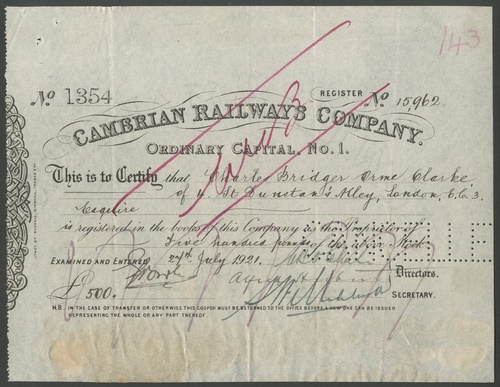 143
No 1354
REGISTER No 15,962
CAMBRIAN RAILWAYS COMPANY.
ORDINARY CAPITAL, No. 1.
This is to Certify that Charles Bridger Orme Clarke
of 4 St Dunstan's Alley, London, E.C.3.
Esquire
is registered in the books of this Company as the Proprietor of
Five hundred pounds of the above Stock
EXAMINED AND ENTERED July 1921.
Directors.
£500.
SECRETARY.
N.B. IN THE CASE OF TRANSFER OR OTHERWISE THIS COUPON MUST BE RETURNED TO THE OFFICE BEFORE A NEW ONE CAN BE ISSUED
REPRESENTING THE WHOLE OR ANY PART THEREOF.